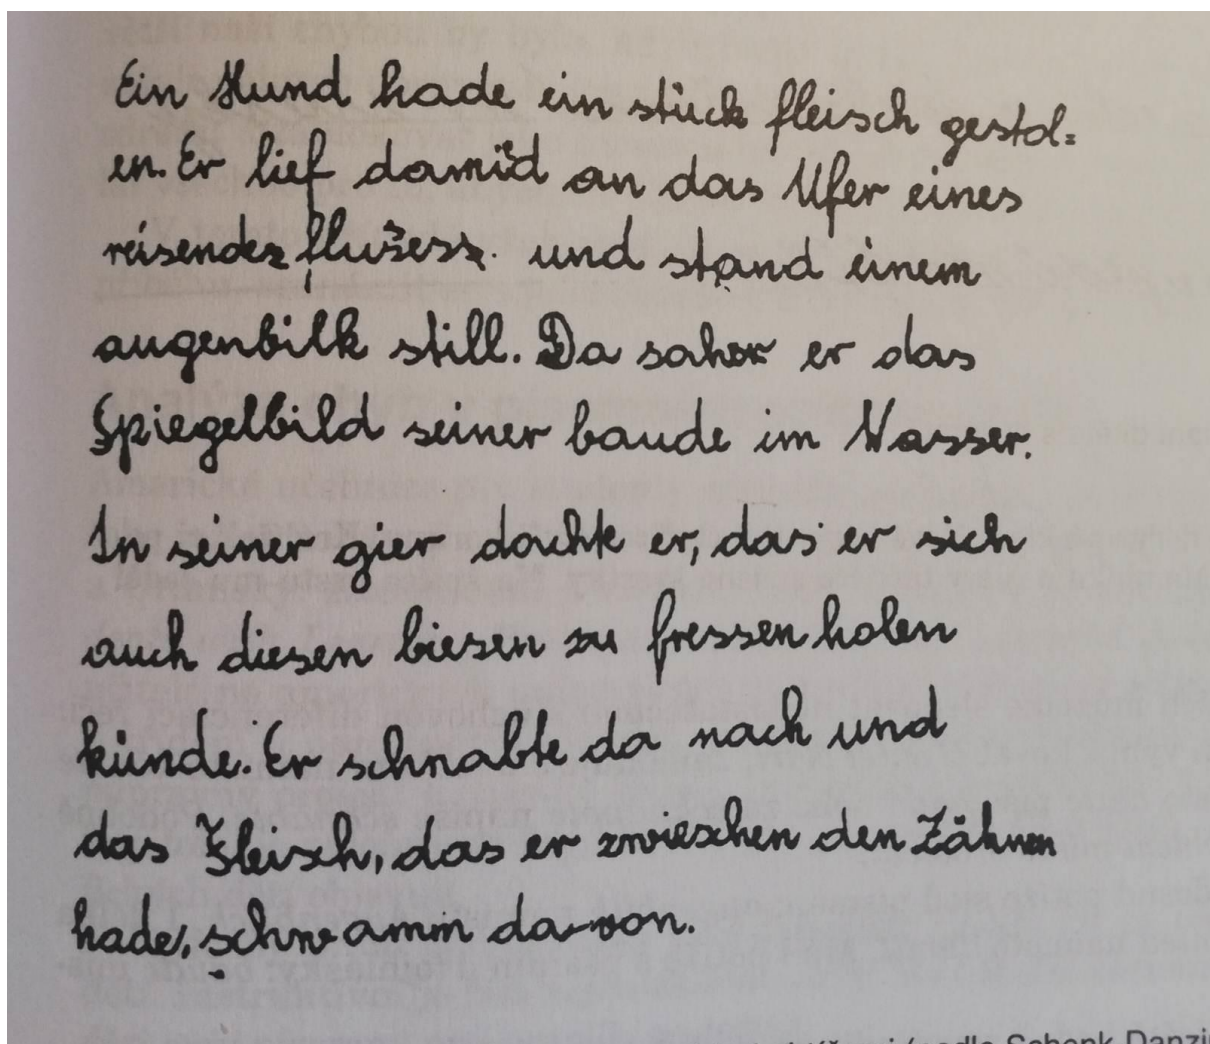 Ein Hund hade ein stück fleisch gestol=
en. Er lief damid an das Ufer eines
reisendes flušess. und stand einem
augenbilk still. Da saher er das
Spiegelbild seiner baude im Wasser.
In seiner gier dachte er, das er sich
auch diesen biesen zu fressen holen
künde. Er schnabte da nach und
das Fleisch, das er zwieschen den Zähnen
hade, schwamm davon.